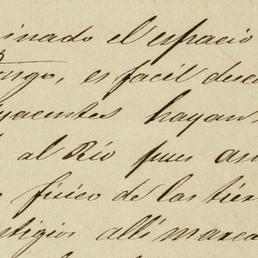 inado el espacio
ongo, es facil desc
yacentes hayan
al Rio pues an
fisico de las tier
stigios alli marca